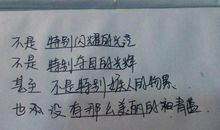 不是特别闪耀的光芒
不是特别夺目的光辉
甚至不是特别撩人的物景
也不没有那么美丽的和青